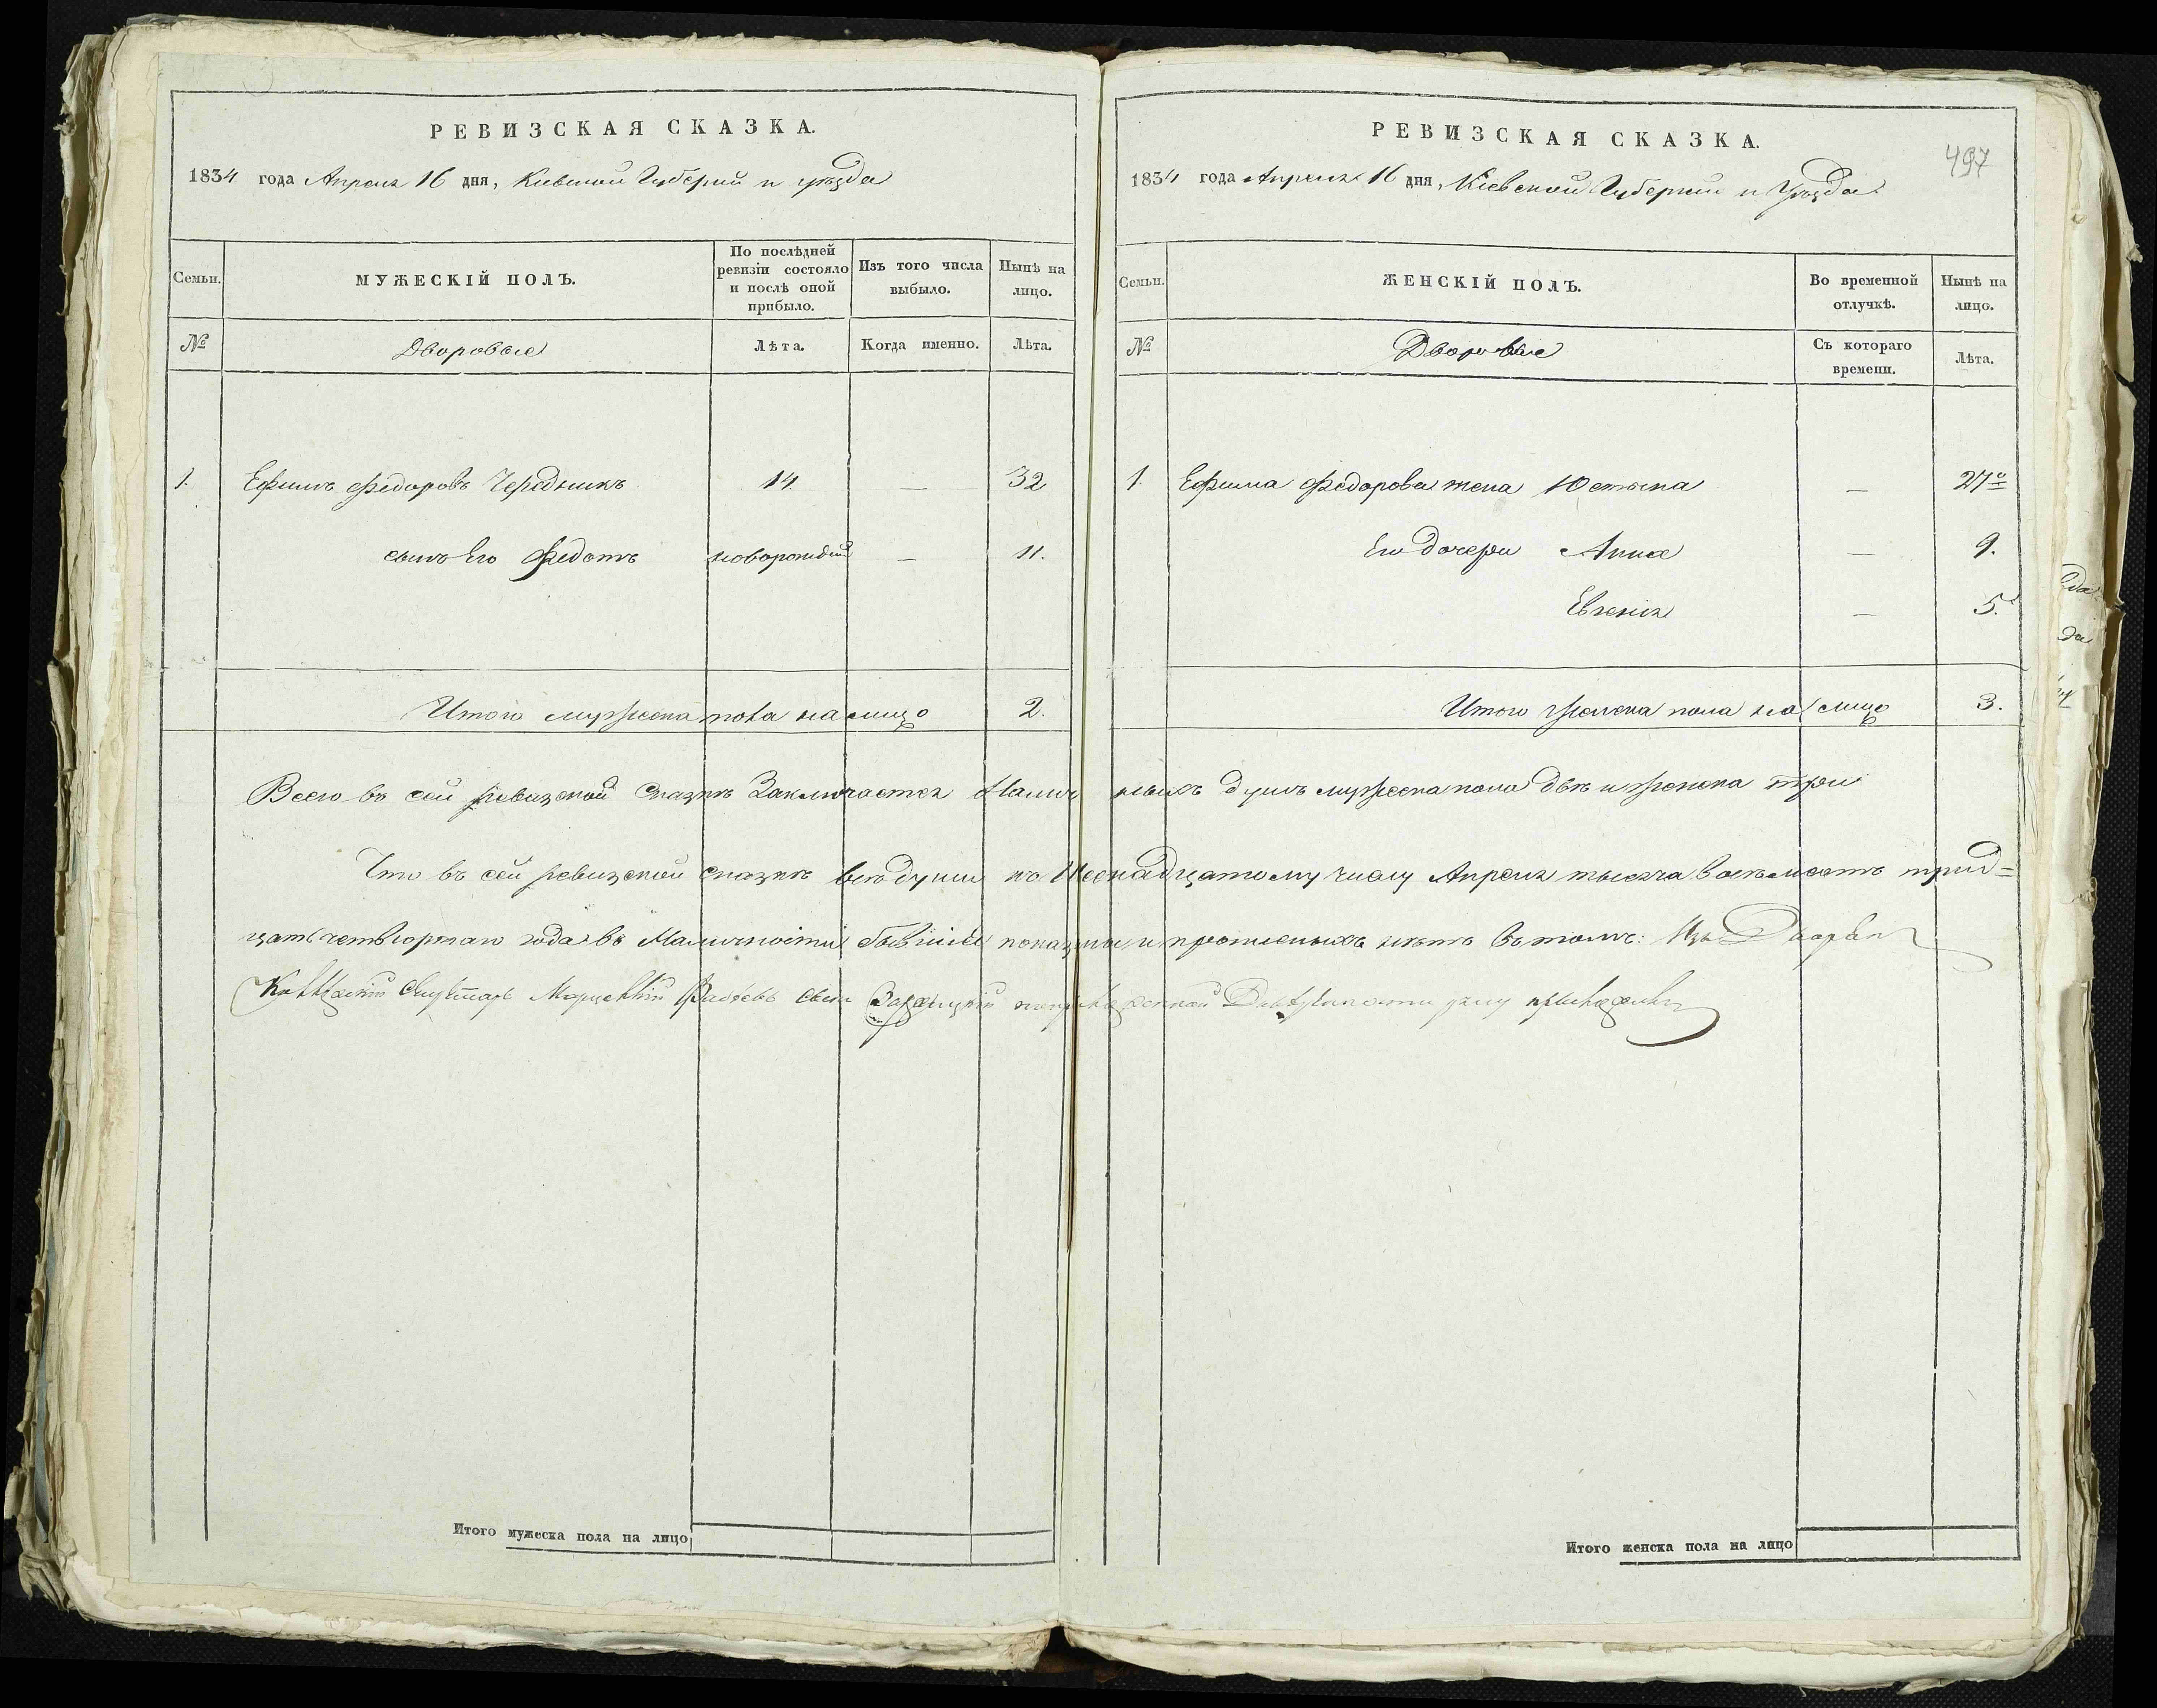 РЕВИЗСКАЯ СКАЗКА.
1834 года Апреля 16 дня, Киевской Губернии и уезда
Семьи.
МУЖЕСКІЙ ПОЛЪ.
По послѣдней ревизіи состояло и послѣ оной прибыло.
Изъ того числа выбыло.
Нынѣ на лицо.
№
Дворовые
Лѣта.
Когда именно.
Лѣта.
1. Ефимъ Федоровъ Чередникъ 14 — 32
сынъ Его Федотъ новорожден — 11.
Итого мужеска пола на лицо 2.
РЕВИЗСКАЯ СКАЗКА.
497
1834 года Апреля 16 дня, Кіевской Губернии и Уѣзда
Семьи.
ЖЕНСКІЙ ПОЛЪ.
Во временной отлучкѣ.
Нынѣ на лицо.
№
Дворовые
Съ котораго времени.
Лѣта.
1 Ефима Федорова жена Юстына — 27
Его дочери Анна — 9.
Евгенія — 5.
Итого женска пола на лицо 3.
Всего въ сей ревизской сказкѣ Заключается Наличныхъ душъ мужеска пола двѣ и женска три
Что въ сей ревизской сказкѣ всѣ души по Шеснадцатому числу Апреля тысяча восемьсотъ трид=
цать четвіортаго года въ Наличности бывшіе показаны и прописныхъ нетъ въ томъ:
Итого мужеска пола на лицо
Итого женска пола на лицо